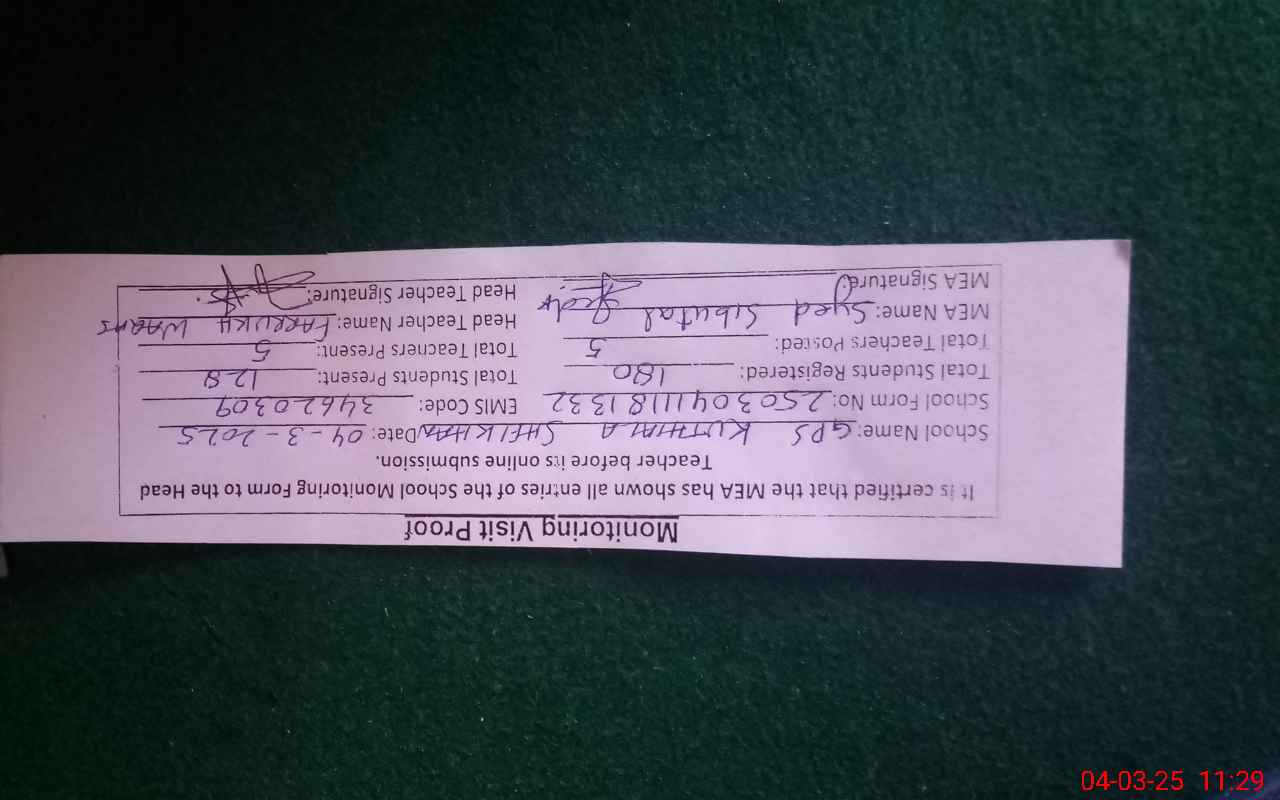 Monitoring Visit Proof
It is certified that the MEA has shown all entries of the School Monitoring Form to the Head
Teacher before its online submission.
School Name: GPS KUTHALA SHEIKHAN Date: 04-3-2025
School Form No: 25030411181332 EMIS Code: 34620309
Total Students Registered: 180 Total Students Present: 128
Total Teachers Posted: 5 Total Teachers Present: 5
MEA Name: Syed Sibutal Head Teacher Name: FARRUKH
MEA Signature: Head Teacher Signature:
04-03-25 11:29